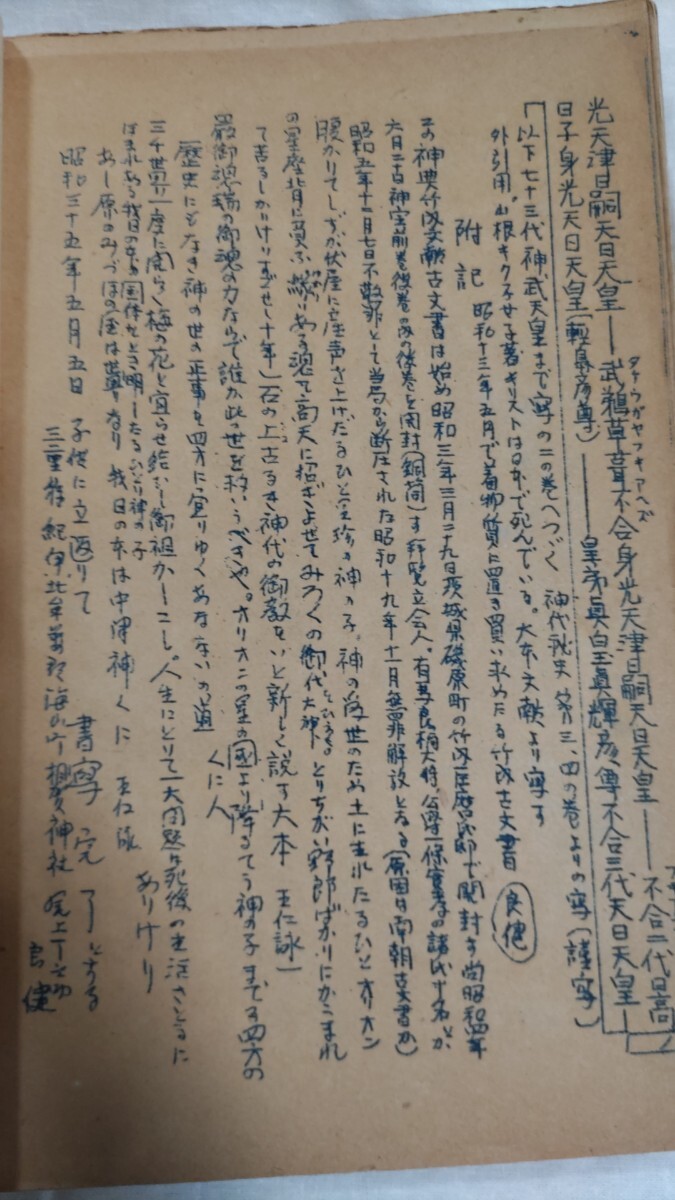 光天津日嗣天日天皇ー武鵜草葺不合身光天津日嗣天日天皇ー不合二代日高
タケウガヤフキアヘズ
日子身光天日天皇(軽島彦尊)ー皇弟眞皇眞輝彦尊不合三代天日天皇ー
「以下七十三代神武天皇まで寧の二の巻へつづく 神代秘史 第三、四の巻よりの寧(謹寧)
外引用。山根キクチ女子著キリストは日本で死んでいる。大本文献より寧す
附記 昭和十三年五月で着物質に置き買い求めたる竹内古文書 良健
この神典竹内文献古文書は始め昭和三年三月二十九日茨城県磯原町の竹内巨麿氏邸で開封す尚昭和四年
六月二日神宝前巻後巻の後巻を開封(銅筒)す拝覧立会人、有馬良橘大将、公爵一條實孝の諸氏十名とか
昭和五年十二月七日不敬罪として当局から断圧された昭和十九年十二月無罪解放となる(原因南朝古文書か)
腹かりてしずが伏屋に産声を上げたるひと宝珍の神の子。神の為世のため土に生れたるひとオリオン
の星座背に負ふ
て苦るしかりけりすごせし十年)石の上古るき神代の御教をいと新しく説す大本 王仁詠一
厳御魂瑞の御魂の力ならで誰か此の世を救いうべきや。オリオンの星の国より降るてう神の子までる四方の
歴史にもなき神の世の正事を四方に宣りゆくあなないの道 くに人
三千世界一度に開らく梅の花と宣らせ給ひし御祖かしこし。人生にとりて一大問題は死後の生活さとるに
ありけり
ほまれある我日の本の国体をとき明したるひとり神の子
あし原のみづほの国は
我日の本は中津神くに 王仁詠
昭和三十五年五月五日 子供に立返りて 書寧 完 了とする
三重県紀伊北牟婁郡海山町相賀神社 尾上
良健